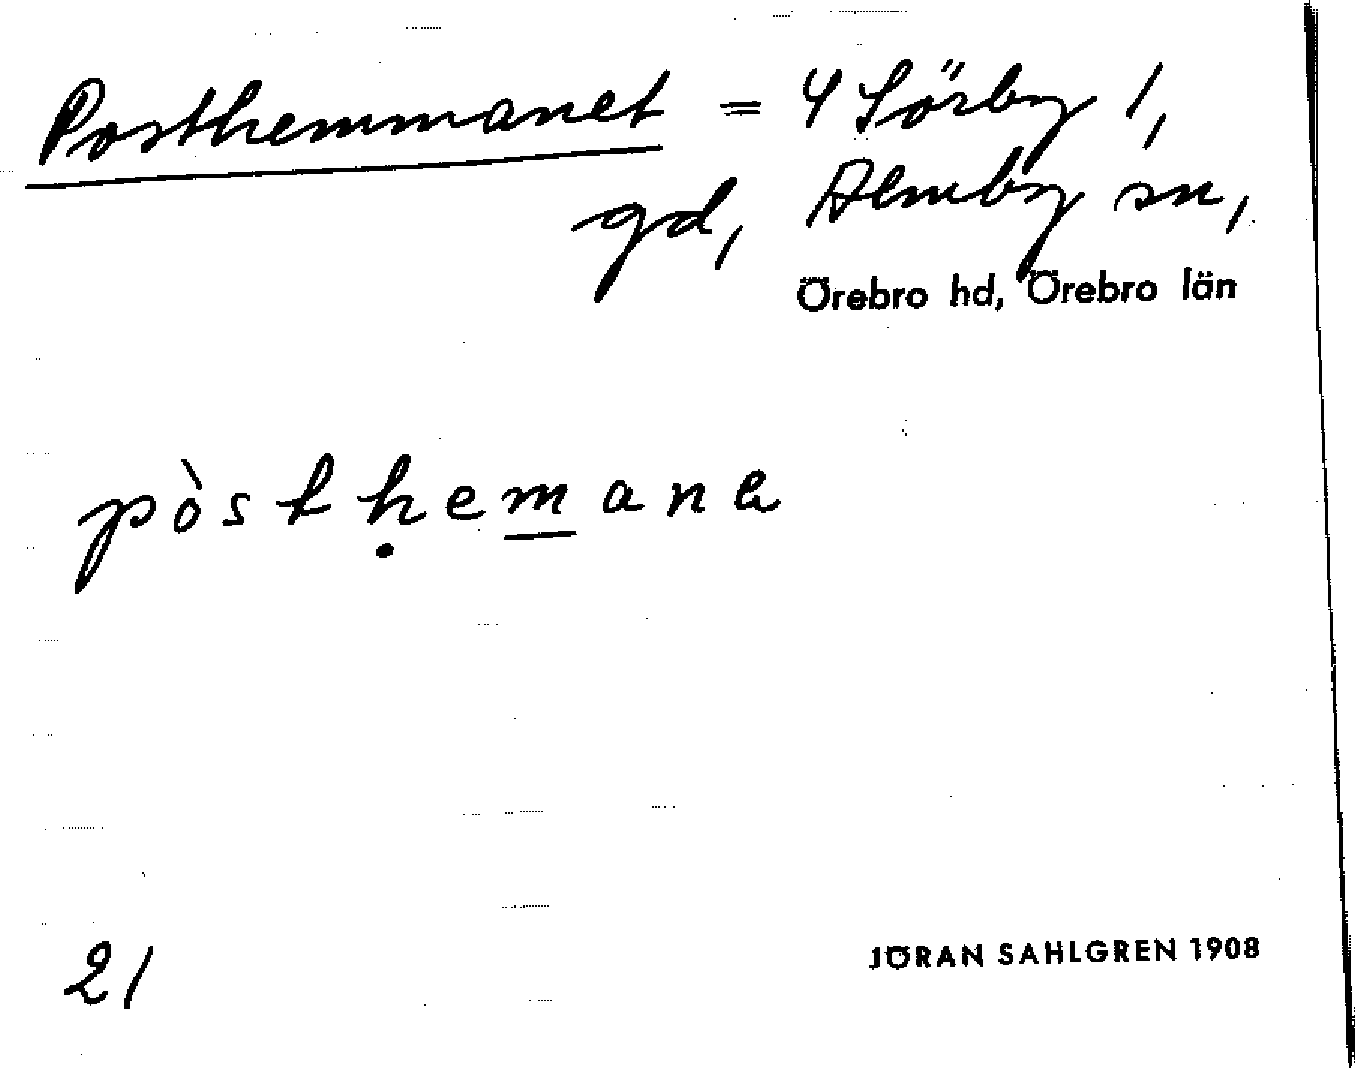 Posthemmanet = 4 Sörby 1,
gd, Almby sn,
Örebro hd, Örebro län
pòstḥem̲ana
21
JÖRAN SAHLGREN 1908